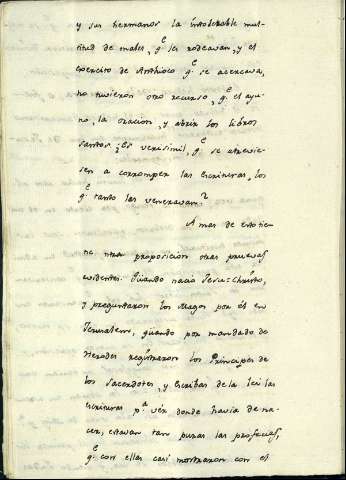 y sus hermanos la intolerable mul-
titud de males, q.e les rodeavan, y el
exercito de Anthioco q.e se acercava,
no tuvieron otro recurso, q.e el ayu-
no, la oracion, y abrir los libros
santos; es verisimil, q.e se atrevie-
sen a corromper las escrituras, los
q.e tanto las veneravan?
A mas de esto tie-
ne ntra proposición otras pruevas
evidentes. Quando nació Jesu-Christo,
y preguntaron los Magos por él en
Jerusalem, quando por mandado de
Herodes registraron los Principes de
los sacerdotes, y escribas de la lei las
escrituras p.a vér donde havia de na-
cer, estavan tan puras las profecias,
q.e con ellas casi mostraron con el